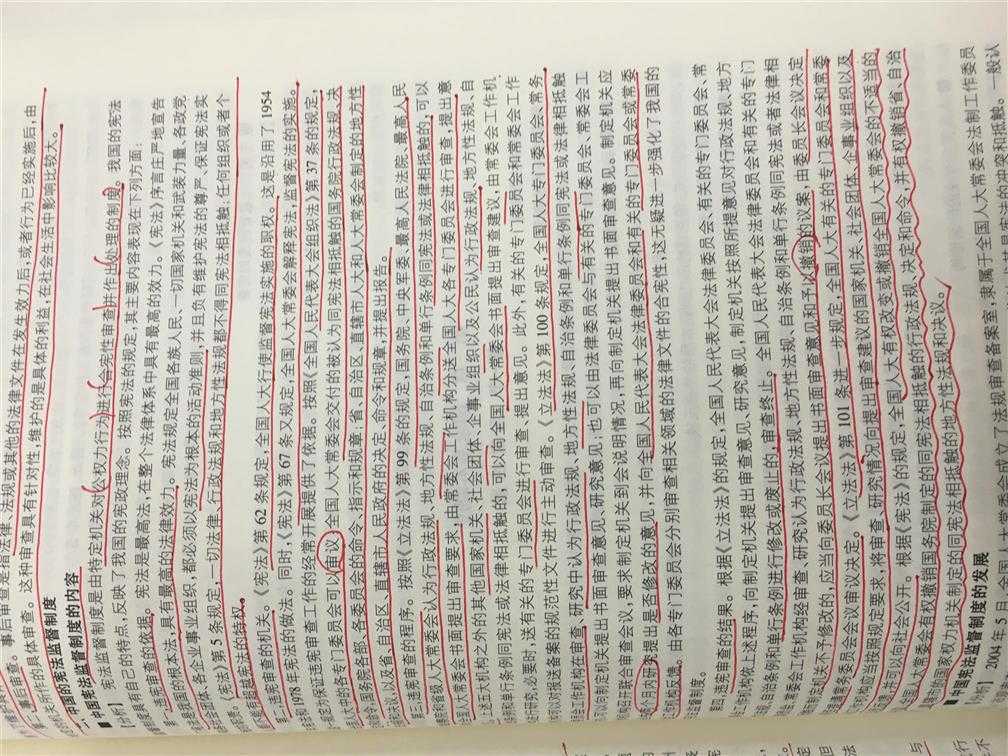 事后审查。事后审查是指法律、法规或其他的法律文件在发生效力后，或者行为已经实施后，由
所作的具体审查。这种审查具有针对性，维护的是具体的利益，在社会生活中影响比较大。
中国的宪法监督制度
■ 中国宪法监督制度的内容
【分析】 宪法监督制度是由特定机关对公权力行为进行合宪性审查并作出处理的制度。我国的宪法
度具有自己的特点，反映了我国的宪政理念。按照宪法的规定，其主要内容表现在下列方面：
违宪审查的依据。宪法是最高法，在整个法律体系中具有最高的效力。《宪法》序言庄严地宣告
我国的根本法，具有最高的法律效力。宪法规定全国各族人民、一切国家机关和武装力量、各政党
社会团体、各企业事业组织，都必须以宪法为根本的活动准则，并且负有维护宪法的尊严、保证宪法实
《宪法》第 5 条规定，一切法律、行政法规和地方性法规都不得同宪法相抵触；任何组织或者个
超越宪法的特权。
违宪审查的机关。《宪法》第 62 条规定，全国人大行使监督宪法实施的职权。这是沿用了 1954
1978 年宪法的做法。同时，《宪法》第 67 条又规定，全国人大常委会解释宪法，监督宪法的实施。
为保证违宪审查工作的经常开展提供了依据。按照《全国人民代表大会组织法》第 37 条的规定，
中的各专门委员会可以审议全国人大常委会交付的被认为同宪法相抵触的国务院行政法规、决
国务院各部、各委员会的命令、指示和规章，省、自治区、直辖市人大和人大常委会制定的地方性
决议，以及省、自治区、直辖市人民政府的决定、命令和规章，并提出报告。
违宪审查的程序。按照《立法法》第 99 条的规定，国务院、中央军委、最高人民法院、最高人民
省级人大常委会认为行政法规、地方性法规、自治条例和单行条例同宪法或法律相抵触的，可以
人大常委会书面提出审查要求，由常委会工作机构分送全国人大各专门委员会进行审查，提出意
上述五大机构之外的其他国家机关、社会团体、企事业组织以及公民认为行政法规、地方性法规、自
和单行条例同宪法或法律相抵触的，可以向全国人大常委会书面提出审查建议，由常委会工作机
行研究，必要时，送有关的专门委员会进行审查、提出意见。此外，有关的专门委员会和常委会工作
可以对报送备案的规范性文件进行主动审查。《立法法》第 100 条规定，全国人大专门委员会、常务
会工作机构在审查、研究中认为行政法规、地方性法规、自治条例和单行条例同宪法或法律相抵触
可向制定机关提出书面审查意见、研究意见；也可以由法律委员会与有关的专门委员会、常委会工
构召开联合审查会议，要求制定机关到会说明情况，再向制定机关提出书面审查意见。制定机关应
个月内研究提出是否修改的意见，并向全国人民代表大会法律委员会和有关的专门委员会或常委
工作机构反馈。由各专门委员会分别审查相关领域的法律文件的合宪性，这无疑进一步强化了我国的
监督制度。
第四，违宪审查的结果。根据《立法法》的规定，全国人民代表大会法律委员会、有关的专门委员会、常
工作机构依上述程序，向制定机关提出审查意见、研究意见，制定机关按照所提意见对行政法规、地方
法规、自治条例和单行条例进行修改或废止的，审查终止。全国人民代表大会法律委员会和有关的专门
会工作机构经审查、研究认为行政法规、地方性法规、自治条例和单行条例同宪法或者法律相
机关不予修改的，应当向委员长会议提出书面审查意见和予以撤销的议案，由委员长会议决定
常务委员会会议审议决定。《立法法》第 101 条进一步规定，全国人大有关的专门委员会和常委
机构应当按照规定要求，将审查、研究情况向提出审查建议的国家机关、社会团体、企事业组织以及
并可以向社会公开。根据《宪法》的规定，全国人大有权改变或撤销全国人大常委会的不适当的
全国人大常委会有权撤销国务院制定的同宪法相抵触的行政法规、决定和命令，并有权撤销省、自治
直辖市的国家权力机关制定的同宪法相抵触的地方性法规和决议。
■ 中国宪法监督制度的发展
【分析】 2004 年 5 月，全国人大常委会 成立了法规审查备案室，隶属于全国人大常委会法制工作委员